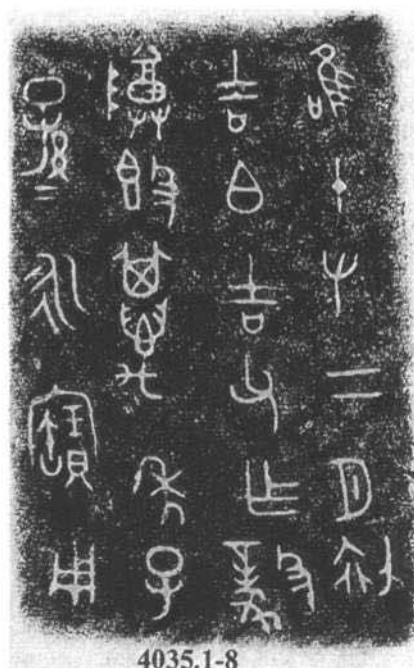 隹十又二月初
吉白吉父乍毅
尊𣪘其萬年子
子孫=永寶用
4035.1-8